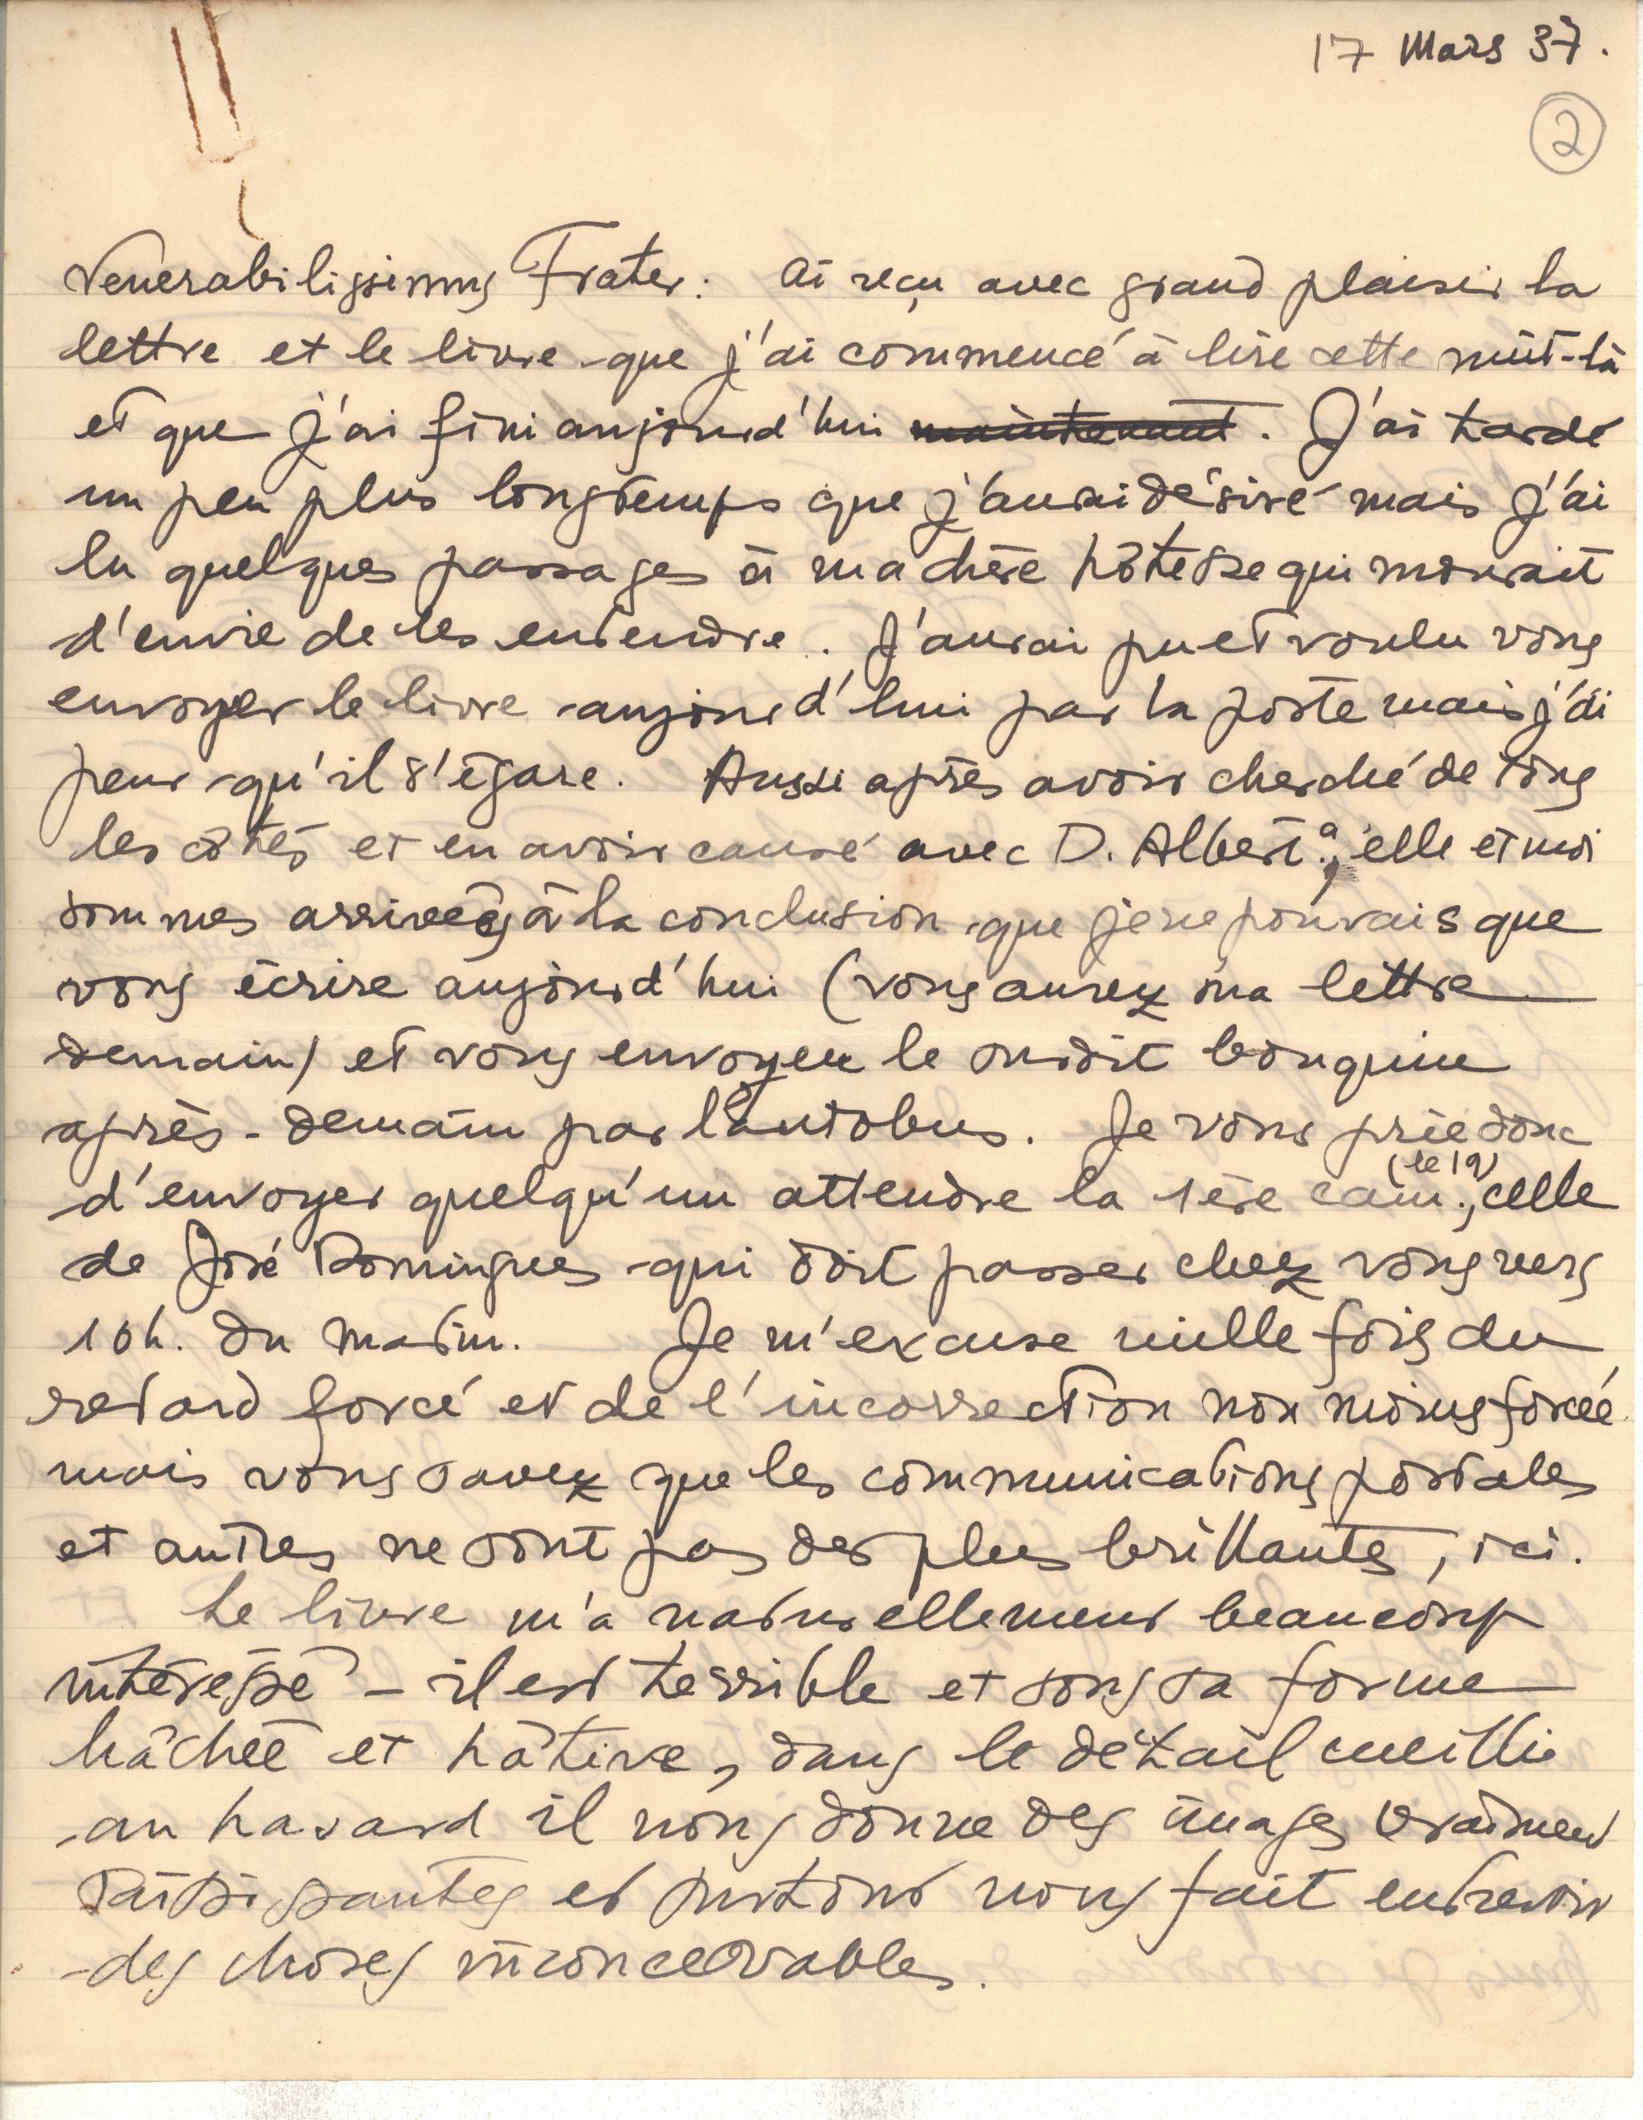 17 Mars 37.
2
Venerabilissimus Frater: Ai reçu avec grand plaisir la
lettre et le livre que j'ai commencé à lire cette nuit-là
et que j'ai fini aujourd'hui maintenant. J'ai tardé
un peu plus longtemps que j'aurai désiré mais j'ai
lu quelques passages à ma chère hôtesse qui mourait
d'envie de les entendre. J'aurai pu et voulu vous
envoyer le livre aujourd'hui par la poste mais j'ai
peur qu'il s'égare. Aussi après avoir cherché de tous
les côtés et en avoir causé avec D. Albert.ª, elle et moi
sommes arrivés à la conclusion que je ne pouvais que
vous écrire aujourd'hui (vous aurez ma lettre
demain) et vous envoyer le susdit bouquin
après-demain par l'autobus. Je vous prie donc
d'envoyer quelqu'un attendre la 1ère cam. (le 19), celle
de José Domingues qui doit passer chez vous vers
10h. du matin. Je m'excuse mille fois du
retard forcé et de l'incorrection non moins forcée
mais vous savez que les communications postales
et autres ne sont pas des plus brillantes, ici.
Le livre m'a naturellement beaucoup
intéressé - il est terrible et sous sa forme
hâchée et hâtive, dans le détail cueilli
au hasard il nous donne des images vraiment
saisissantes et surtout nous fait entrevoir
des choses inconcevables.